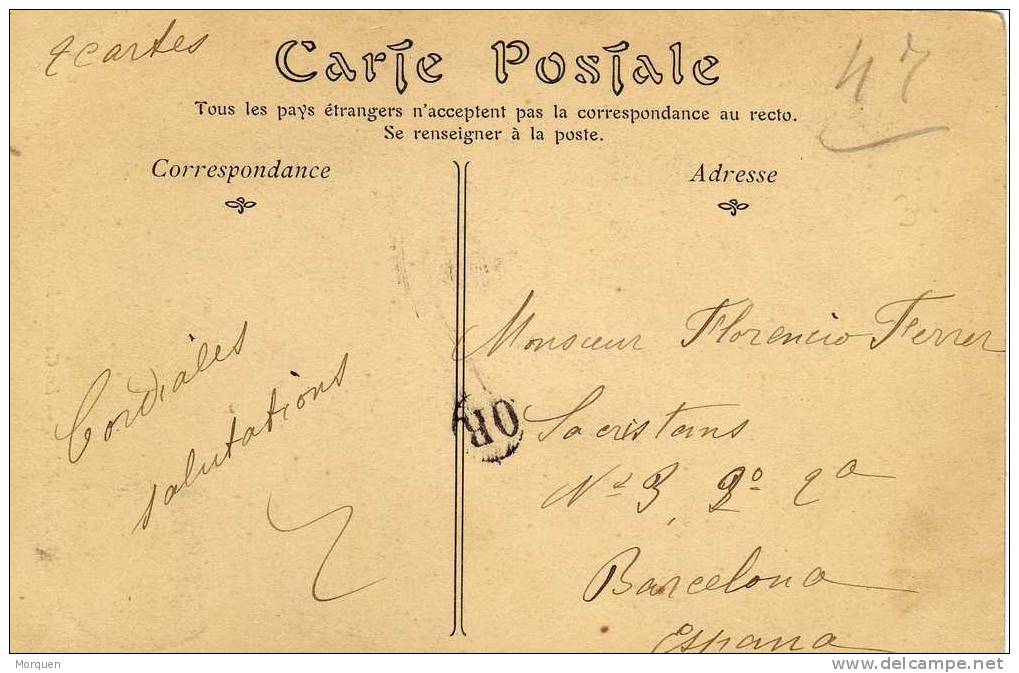 2 cartes
Carte Postale
47
Tous les pays étrangers n'acceptent pas la correspondance au recto.
Se renseigner à la poste.
Correspondance
Adresse
Cordiales
salutations
Monsieur Florencio Ferrer
OR
Sacristans
Nº 3, 2º 2ª
Barcelona
Espana
Morquen
delcampe.net